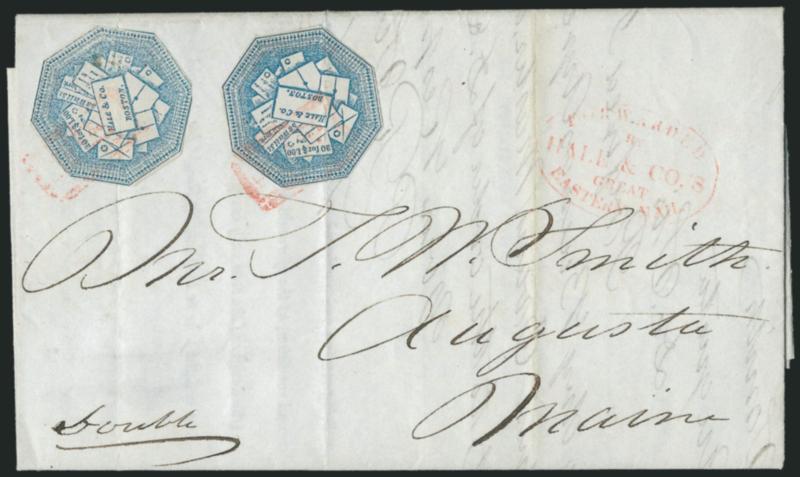 HALE & CO.
BOSTON.
20 for $1.00
HALE & CO.
BOSTON.
20 for $1.00
FORWARDED
BY
HALE & CO.'S
GREAT
EASTERN MAIL
Mr. T. W. Smith
Augusta
Maine
Double